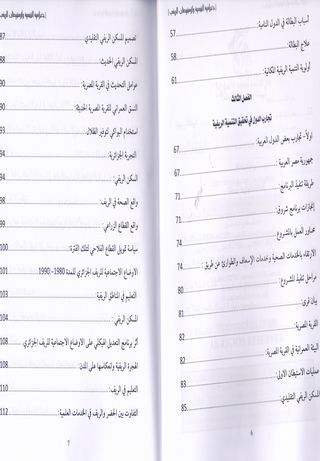 أسباب البطالة في الدول النامية: 57
علاج البطالة: 58
أولوية التنمية الريفية المكانية: 61
الفصل الثالث
تجارب الدول في تحقيق التنمية الريفية
أولا- تجارب بعض الدول العربية: 67
جمهورية مصر العربية: 67
طريقة تنفيذ البرنامج: 71
إنجازات برنامج شروق: 71
محاور العمل بالمشروع: 74
الارتقاء بالخدمات الصحية وخدمات الإسعاف والطوارئ عن طريق: 74
مراحل تنفيذ المشروع: 80
بيان قرى: 81
القرية المصرية: 82
البيئة العمرانية في القرية المصرية: 82
عمليات الاستيطان الأولى: 83
المسكن الريفي التقليدي: 85
6
تصميم المسكن الريفي التقليدي: 87
المسكن الريفي الحديث: 88
عوامل التحديث في القرية المصرية: 90
النسق العمراني للقرية المصرية الحديثة: 90
استخدام البواكي لتوفير الظلال: 93
التجربة الجزائرية: 94
السكن الريفي: 94
واقع الصحة في الريف: 98
واقع القطاع الزراعي: 99
سياسة تمويل القطاع الفلاحي لتلك الفترة: 100
الاوضاع الاجتماعية للريف الجزائري للمدة 1980-1990: 101
التعليم في المناطق الريفية: 103
السكن الريفي: 104
أثر برنامج التعديل الهيكلي على الاوضاع الاجتماعية للريف الجزائري: 108
الهجرة الريفية وانعكاسها على المدن: 108
التعليم في الريف: 110
التفاوت بين الحضر والريف في الخدمات العلمية: 112
7